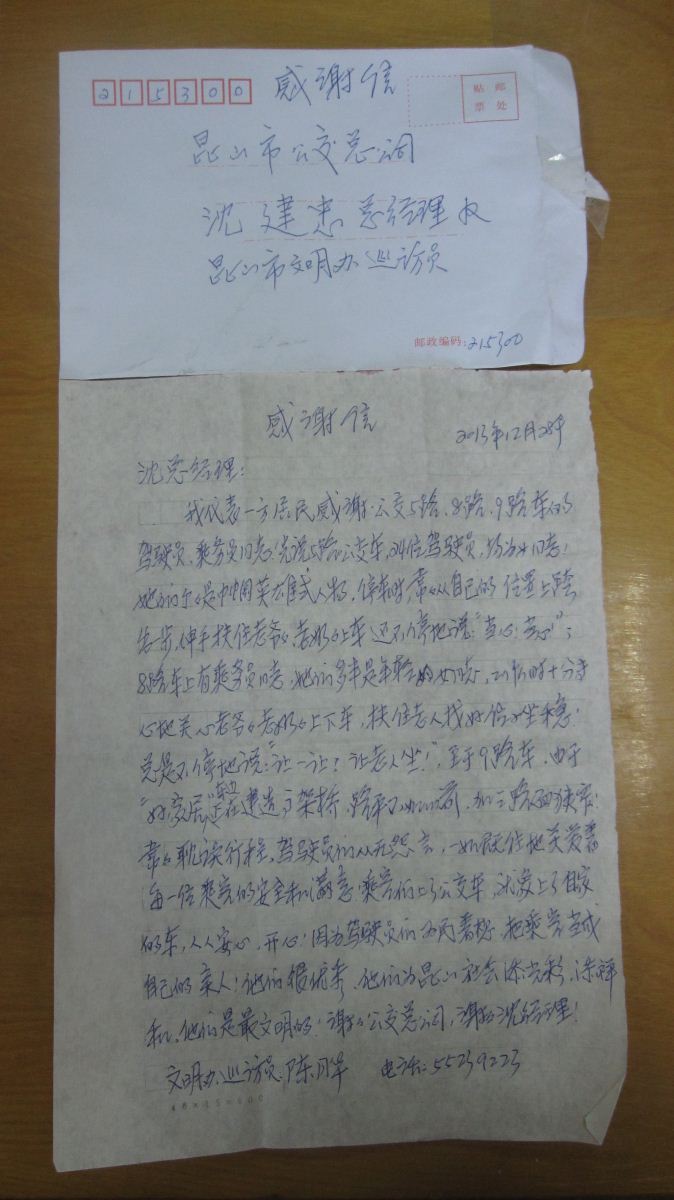 215300
感谢信
贴邮
票处
昆山市公交总公司
沈建忠总经理收
昆山市文明办巡访员
邮政编码:215300
感谢信
2013年12月28号
沈总经理:
我代表一方居民感谢公交5路、8路、9路车的
驾驶员、乘务员同志!先说5路公交车,24位驾驶员,均为女同志!
她们个个是巾帼英雄式人物,停车时,常常从自己的位置上跨
步,伸手扶住老爷爷、老奶奶上车还不停地说:"当心!当心!";
8路车上有乘务员同志,她们多半是年轻的女同志,工作时十分专
心地关心老爷爷老奶奶上下车,扶住老人找好位子坐稳!
总是不停地说:"让一让!让老人坐!"。至于9路车,由于
"好家居"旁边正在建造高架桥,路平不如以前,加之路面狭窄,
常常耽误行程,驾驶员们从无怨言,一如既往地关爱着
每一位乘客的安全和满意!乘客们上了公交车,就象上了自家
的车,人人安心,开心!因为驾驶员们把乘客当成
自己的亲人!他们很优秀,他们为昆山社会添光彩,添祥
和,他们是最文明的!谢谢公交总公司,谢谢沈经理!
文明办巡访员:陈月华 电话:55239223